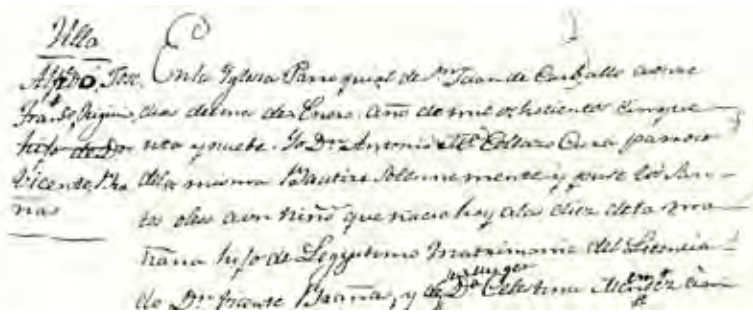 Villa
Alfredo, José,
Franco, Higinio,
hijo de Dn
Vicente Bra
ñas
En la Iglesia Parroquial de Sn Juan de Carballo a once
dias del mes de Enero año de mil ochocientos cinque
nta y nuebe. Yo Dn Antonio Collazo Cura parroco
de la misma Bautize Solennemente y puse los San
tos oleos a un niño que nacio hoy a las diez de la ma
ñana hijo de Legyptimo Matrimonio del Licencia
do Dn Vicente Brañas, y de su muger Da Celestina